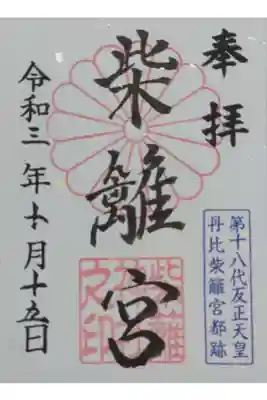 奉拝
柴籬宮
第十八代反正天皇
丹比柴籬宮都跡
令和三年十月十五日